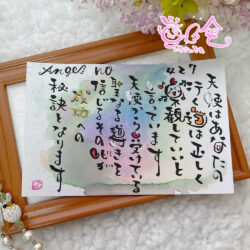 Angel no 227
天使はあなたの
行く道は正しく
楽観していいと
言っています
天使から受けている
聖なる導きを
信じるそのじが
成功への
秘訣となります